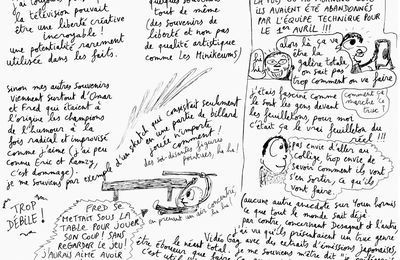 la télévision pouvait
être une liberté créative
incroyable !
une potentialité rarement
utilisée dans les faits.
quelques
tout de même
(des souvenirs de
liberté et non pas
de qualité artistique
comme les Minikeums)
sinon mes autres souvenirs
viennent surtout d'Omar
et Fred qui étaient à
l'origine les champions
de l'humour à la
fois radical et improvisé
comme j'aime (j'ai peu
connu Eric et Ramzy,
c'est dommage).
je me souviens par exemple d'un sketch qui consistait seulement
en une partie de billard
jouée n'importe
comment !
des soi-disantes figures
pointues, ha ha !
TROP
DÉBILE !
FRED SE
METTAIT SOUS LA
TABLE POUR JOUER
SON COUP ! SANS
REGARDER LE JEU !
J'AURAIS AIMÉ AVOIR
ils avaient été abandonnés
par l'équipe technique pour
le 1er avril !!!
alors là ça va
être la
galère totale,
on sait pas
trop comment on va faire
j'étais fasciné comme
le sont les gens devant
les feuilletons, pour moi
c'était ça le vrai feuilleton du
réel !!!
comment ça
marche le
truc
pas envie d'aller au
collège, trop envie de
savoir comment ils vont
s'en sortir, ce qu'ils
vont faire.
aucune autre anecdote sur Youn hormis
ce que tout le monde sait déjà.
par contre concernant Desagnat et l'autre,
j'ai vu qu'ils présentaient un truc genre
Vidéo Gag avec des extraits d'émissions japonaises,
le néant total
je me souviens m'être dit